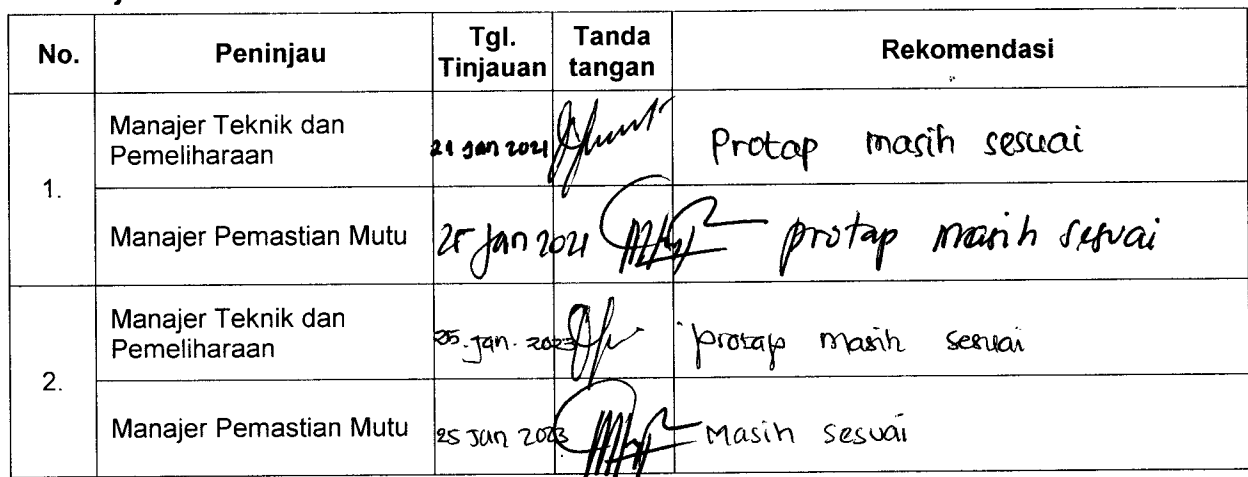 No.
Peninjau
Tgl. Tinjauan
Tanda tangan
Rekomendasi
1.
Manajer Teknik dan
Pemeliharaan
21 Jan 2021
Protap masih sesuai
Manajer Pemastian Mutu
25 Jan 2021
protap masih sesuai
2.
Manajer Teknik dan
Pemeliharaan
25. Jan. 2023
protap masih sesuai
Manajer Pemastian Mutu
25 Jan 2023
Masih sesuai